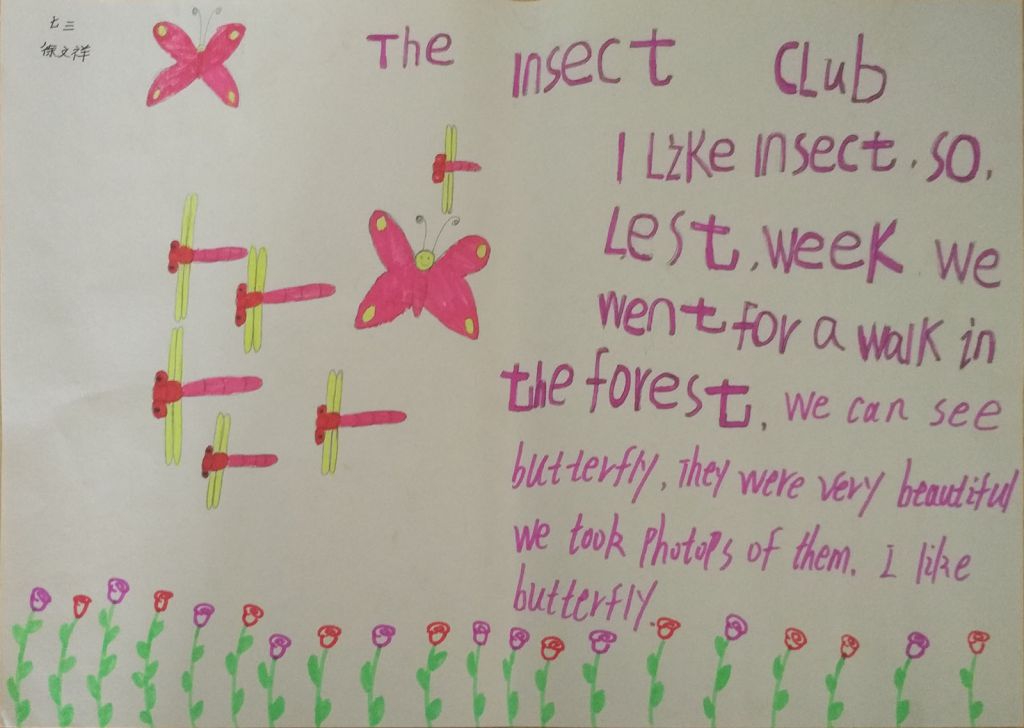 七三
徐文祥
The Insect Club
I Like Insect. so,
Lest, week we
went for a walk in
the forest, we can see
butterfly, They were very beautiful
we took photops of them. I like
butterfly.